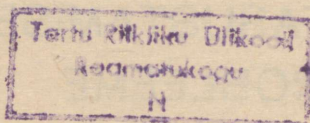 Tartu Riikliku Ülikooli
Raamatukogu
N